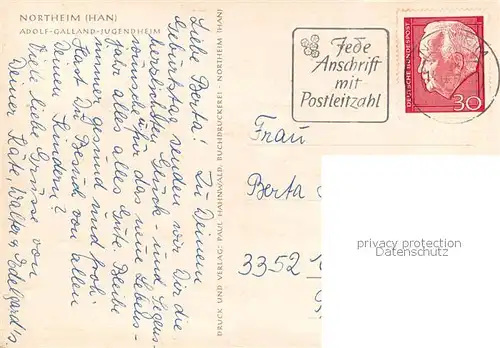 NORTHEIM (HAN)
ADOLF-GALLAND-JUGENDHEIM
Liebe Berta! Zu Deinem
Geburtstag senden wir Dir die
herzlichsten Glück- und Segens-
wünsche für das neue Lebens-
jahr alles alles Gute. Bleibe
immer gesund und froh.
Hast Du Besuch von allen
Deinen Kindern?
Viele liebe Grüsse von
Deiner Käte Walter u Edelgard's
DRUCK UND VERLAG: PAUL HAHNWALD, BUCHDRUCKEREI · NORTHEIM (HAN)
Jede
Anschrift
mit
Postleitzahl
DEUTSCHE BUNDESPOST
30
Frau
Berta
3352
privacy protection
Datenschutz